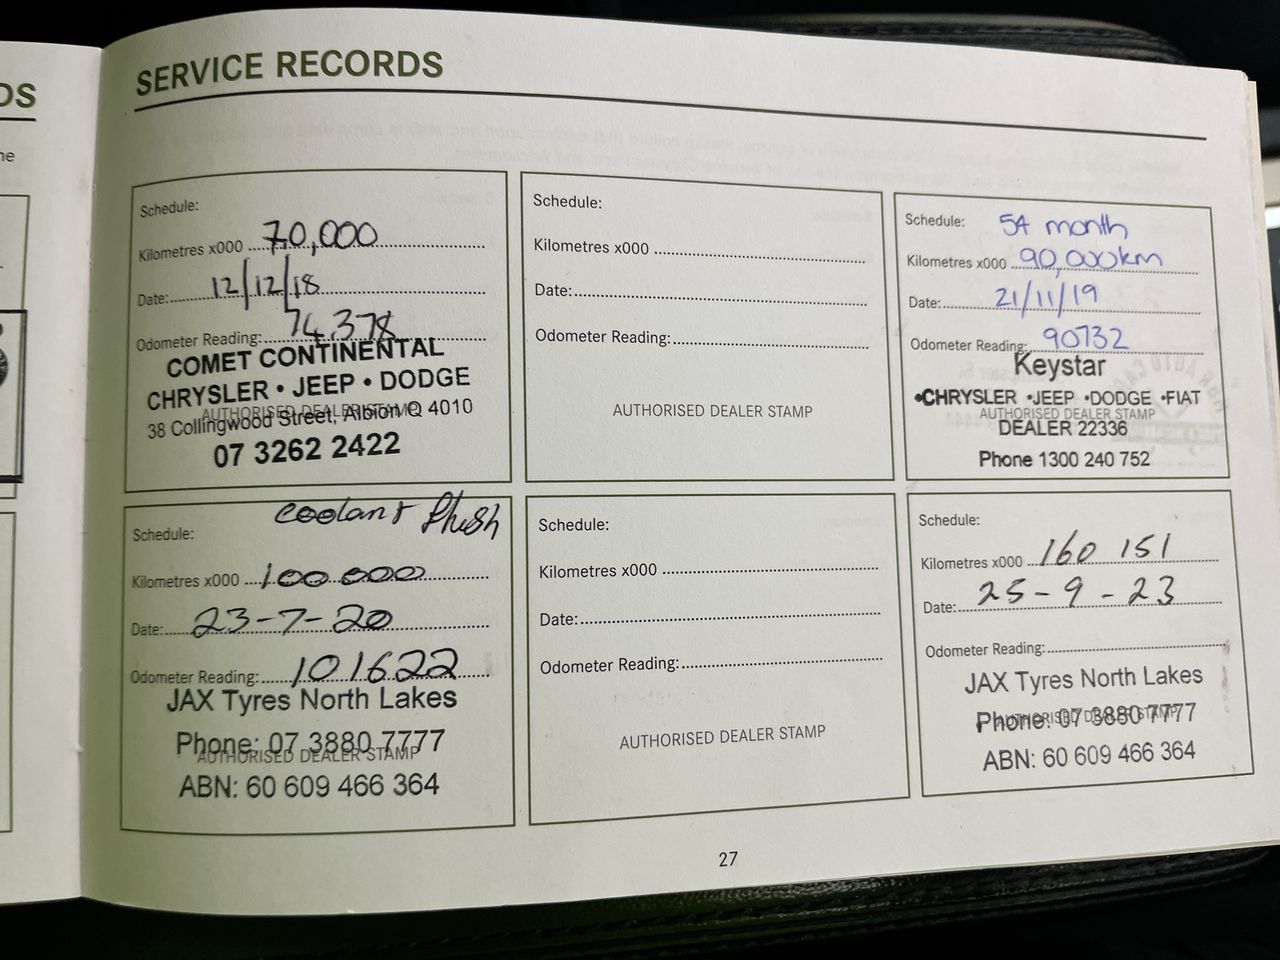 DS
ne
SERVICE RECORDS
Schedule:
Kilometres x000 70,000
Date: 12/12/18
Odometer Reading: 74,378
COMET CONTINENTAL
CHRYSLER • JEEP • DODGE
AUTHORISED DEALER STAMP
38 Collingwood Street, Albion Q 4010
07 3262 2422
Schedule:
Kilometres x000
Date:
Odometer Reading:
AUTHORISED DEALER STAMP
Schedule: 54 month
Kilometres x000 90,000km
Date: 21/11/19
Odometer Reading: 90732
Keystar
•CHRYSLER •JEEP •DODGE •FIAT
AUTHORISED DEALER STAMP
DEALER 22336
Phone 1300 240 752
coolant flush
Schedule:
Kilometres x000 100 000
Date: 23-7-20
Odometer Reading: 101622
JAX Tyres North Lakes
Phone: 07 3880 7777
AUTHORISED DEALER STAMP
ABN: 60 609 466 364
Schedule:
Kilometres x000
Date:
Odometer Reading:
AUTHORISED DEALER STAMP
Schedule:
Kilometres x000 160 151
Date: 25-9-23
Odometer Reading:
JAX Tyres North Lakes
Phone: 07 3880 7777
AUTHORISED DEALER STAMP
ABN: 60 609 466 364
27